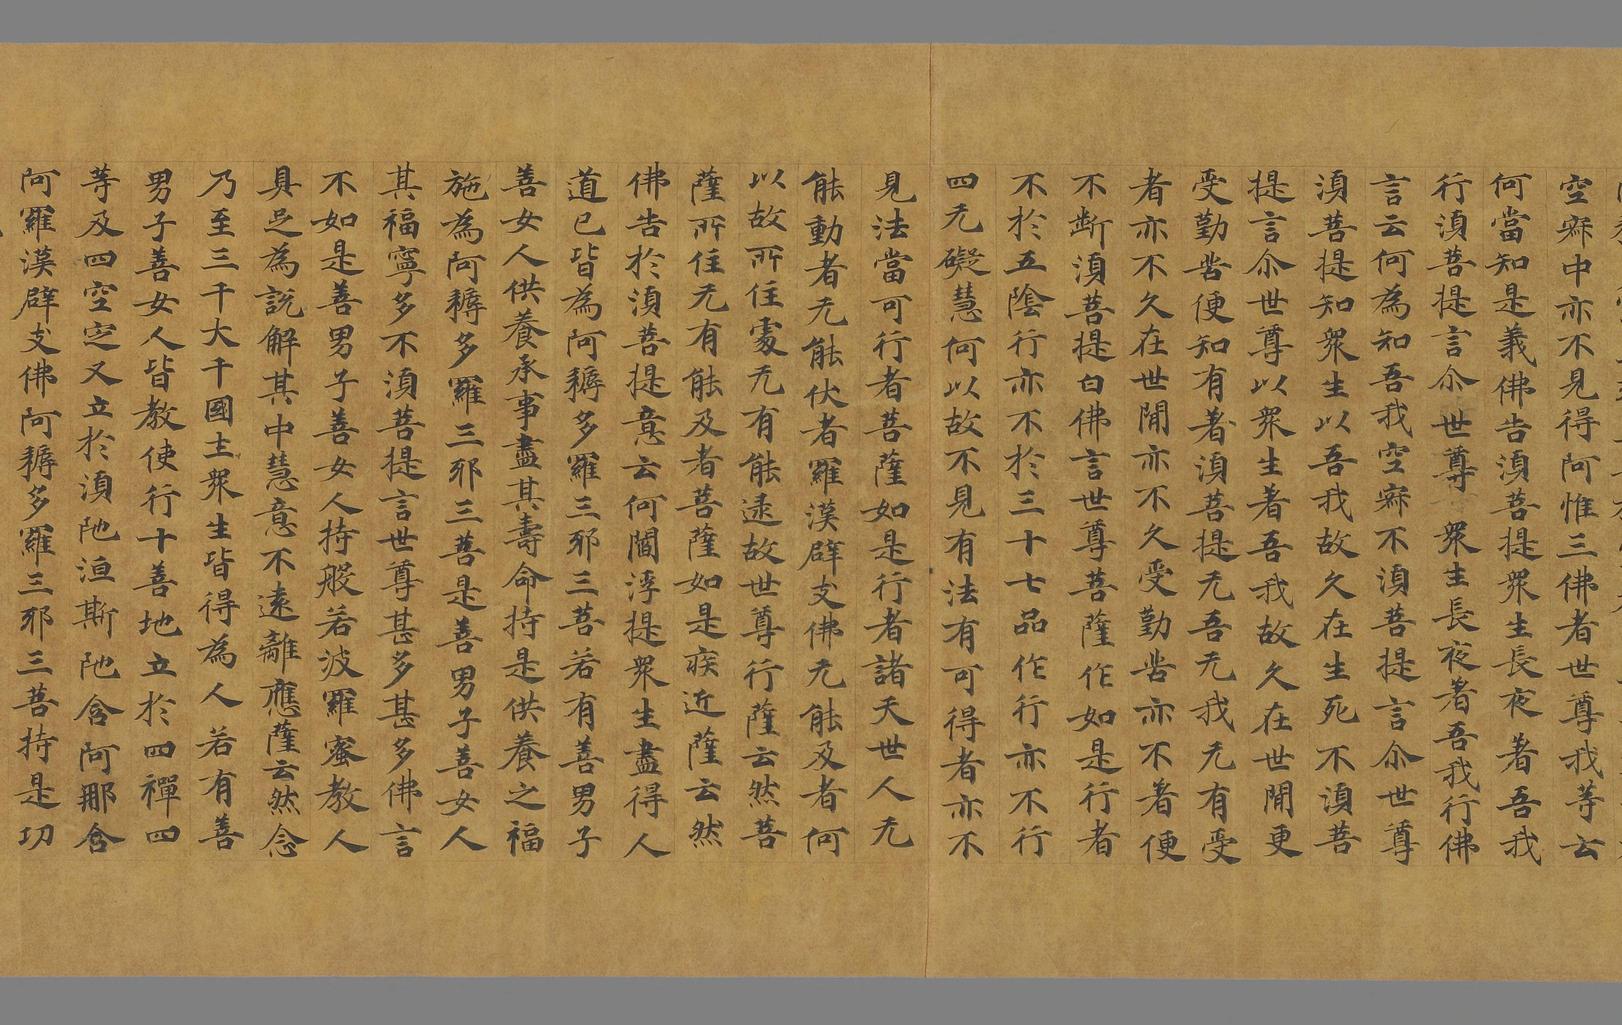 空寂中亦不見得阿惟三佛者世尊我等云
何當知是義佛告湏菩提衆生長夜著吾我
行湏菩提言尒世尊衆生長夜著吾我行佛
言云何為知吾我空寂不湏菩提言尒世尊
湏菩提知衆生以吾我故久在生死不湏菩
提言尒世尊以衆生著吾我故久在世閒更
受勤苦便知有著湏菩提无吾无我无有受
者亦不久在世閒亦不久受勤苦亦不著便
不断湏菩提白佛言世尊菩薩作如是行者
不於五陰行亦不於三十七品作行亦不行
四无礙慧何以故不見有法有可得者亦不
見法當可行者菩薩如是行者諸天世人无
能動者无能伏者羅漢辟支佛无能及者何
以故所住處无有能逮故世尊行薩云然菩
薩所住无有能及者菩薩如是疾近薩云然
佛告於湏菩提意云何閻浮提衆生盡得人
道已皆為阿耨多羅三耶三菩若有善男子
善女人供養承事盡其壽命持是供養之福
施為阿耨多羅三耶三菩是善男子善女人
其福寧多不湏菩提言世尊甚多甚多佛言
不如是善男子善女人持般若波羅蜜教人
具足為説解其中慧意不遠離應薩云然念
乃至三千大千國土衆生皆得為人若有善
男子善女人皆教使行十善地立於四禪四
等及四空定又立於湏陁洹斯陁含阿那含
阿羅漢辟支佛阿耨多羅三耶三菩持是功